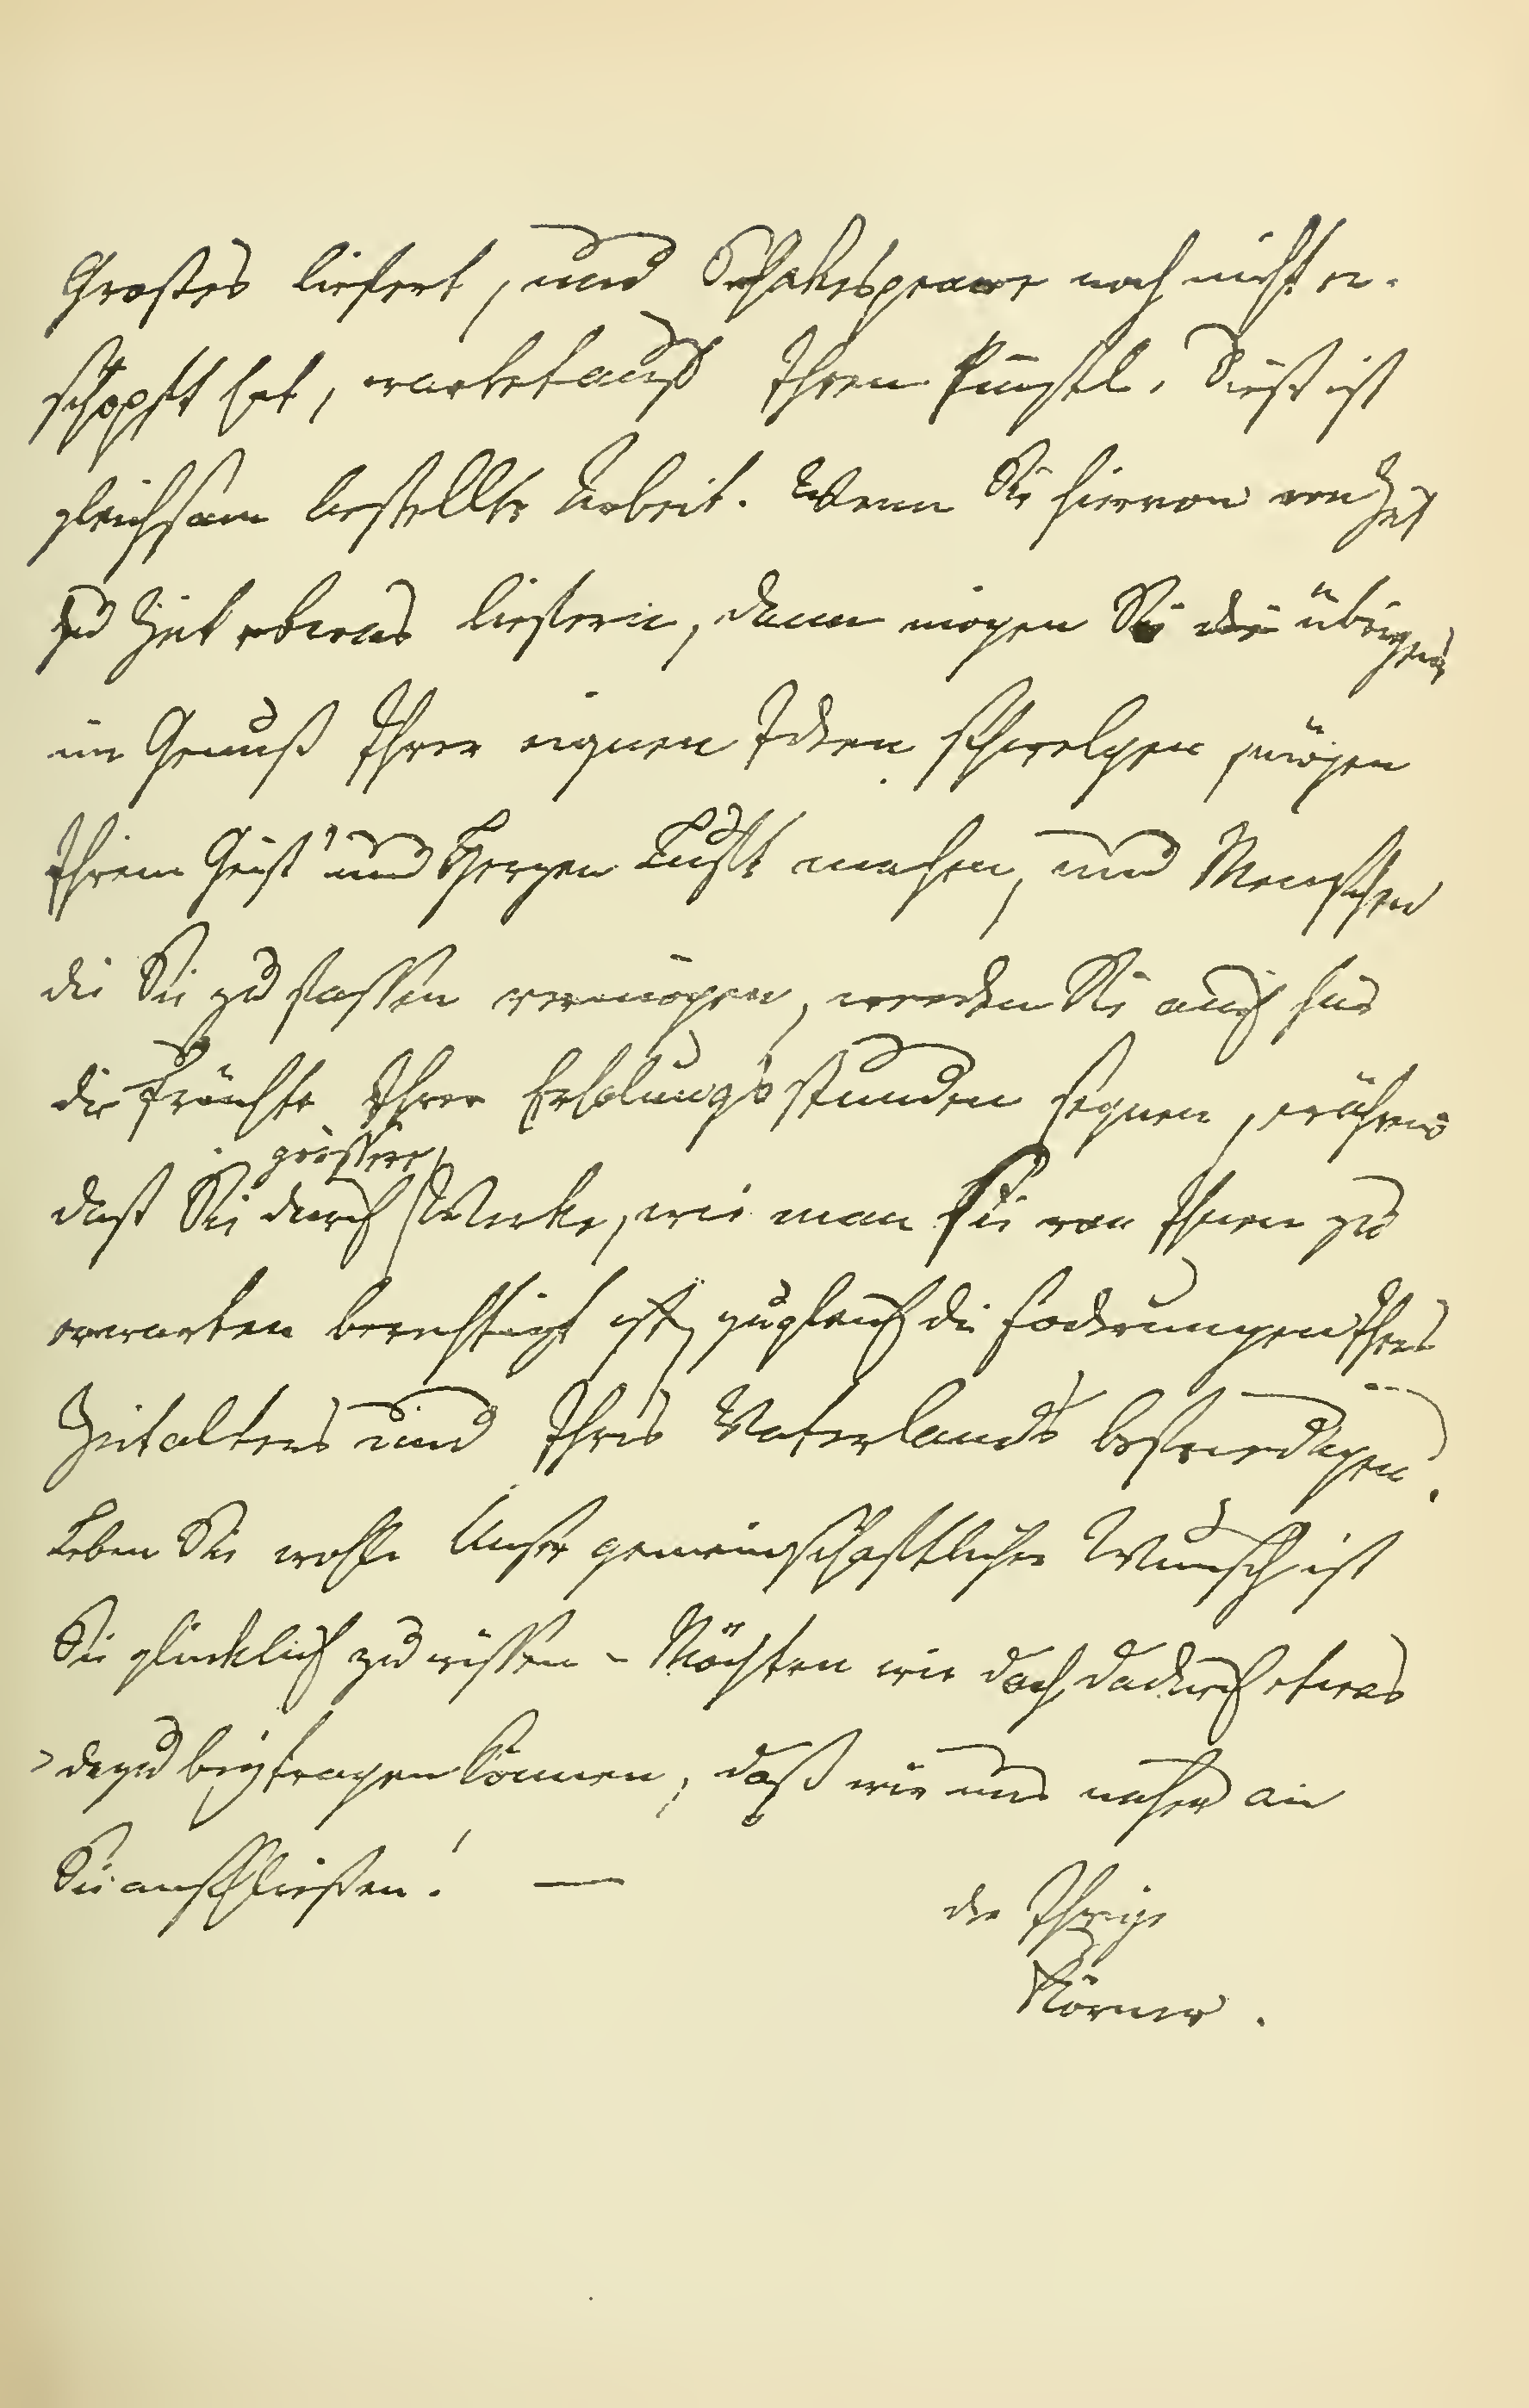 Großes liefert, und Schakespeare noch nicht er-
schöpft hat, wartet auf Ihren Pinsel. Dieß ist
gleichsam bestellte Arbeit. Wenn Sie hiervon von Zeit
zu Zeit etwas liefern, dann mögen Sie die übrigens
im Genuß Ihrer eignen Ideen schwelgen, mögen
Ihrem Geist und Herzen Luft machen, und Menschen
die Sie zu fassen vermögen, werden Sie auch für
die Früchte Ihrer Erholungsstunden segnen, während
daß Sie durch größere Werke, wie man sie von Ihnen zu
erwarten berechtigt ist, zugleich die Foderungen Ihres
Zeitalters und Ihres Vaterlands befriedigen.
Leben Sie wohl. Unser gemeinschaftlicher Wunsch ist
Sie glücklich zu wissen – Möchten wir doch dadurch etwas
dazu beytragen können, daß wir uns näher an
Sie anschließen! —
der Ihrige
Körner.